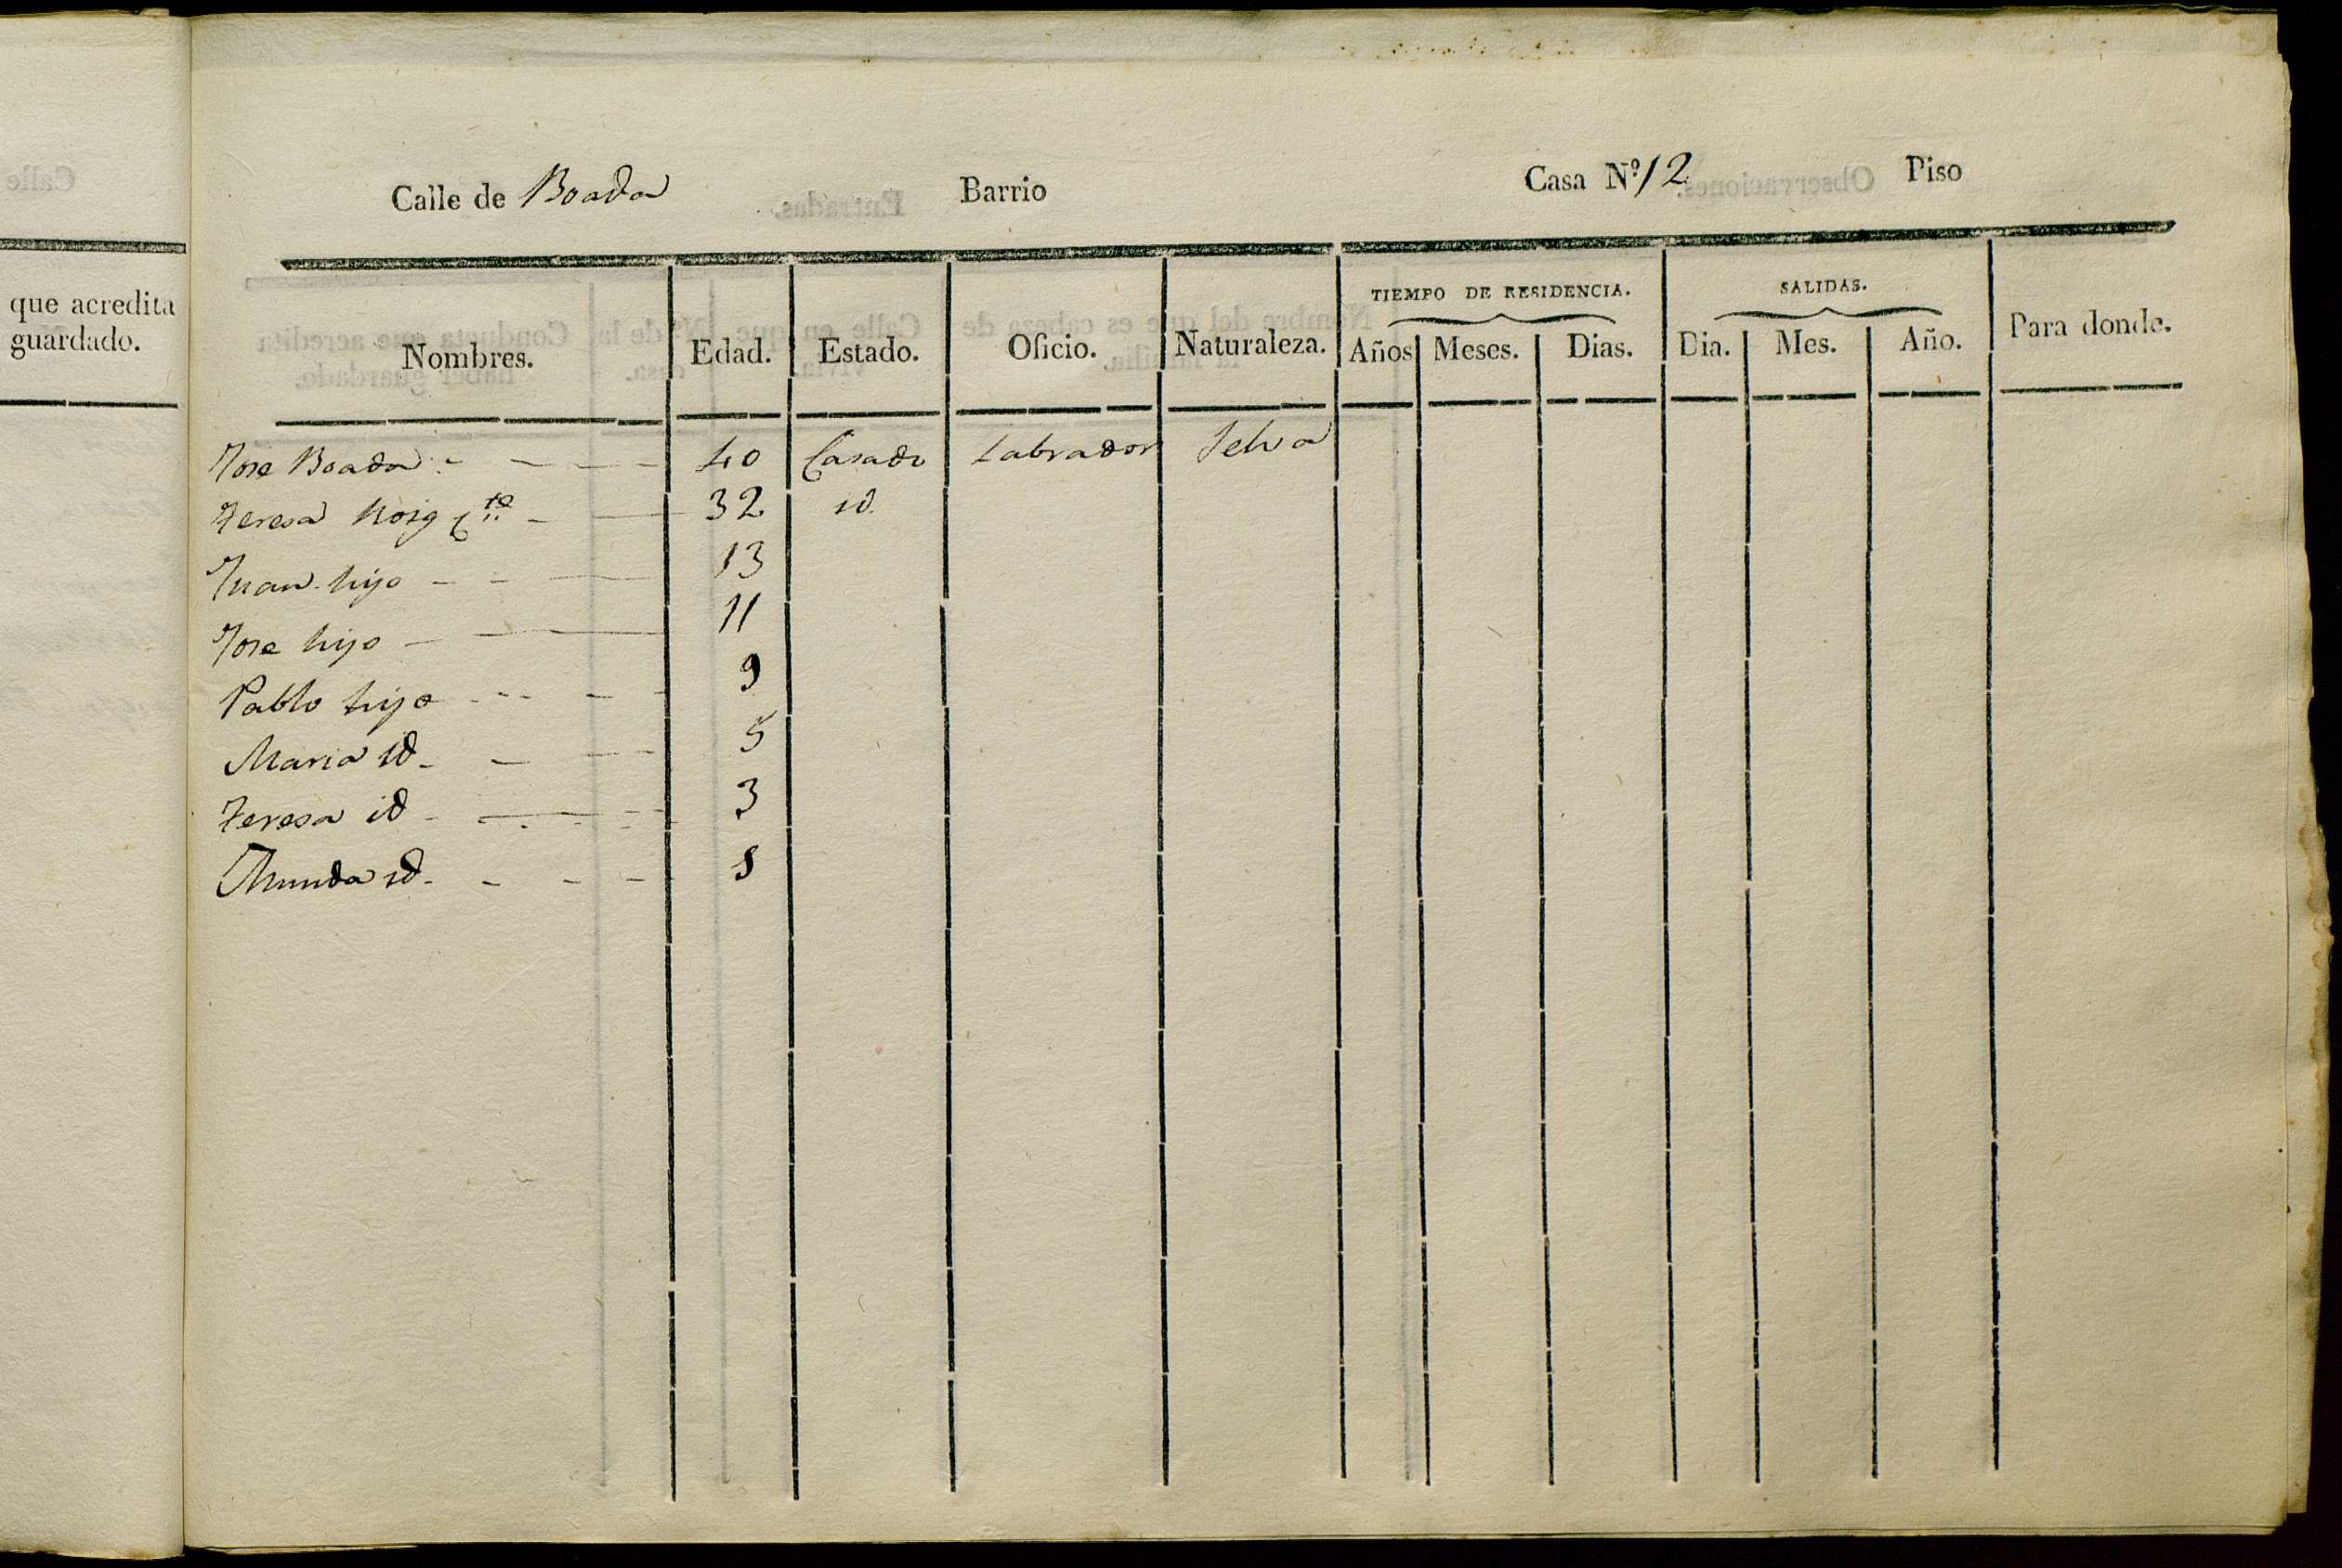 que acredita
guardado.
Calle de Boada Barrio Casa Nº 12 Piso
TIEMPO DE RESIDENCIA. SALIDAS.
Nombres. Edad. Estado. Oficio. Naturaleza. Años Meses. Dias. Dia. Mes. Año. Para donde.
Jose Boada 40 Casado Labrador Selva
Teresa Roig 32 id.
Juan hijo 13
Jose hijo 11
Pablo hijo 9
Maria id 5
Teresa id 3
id